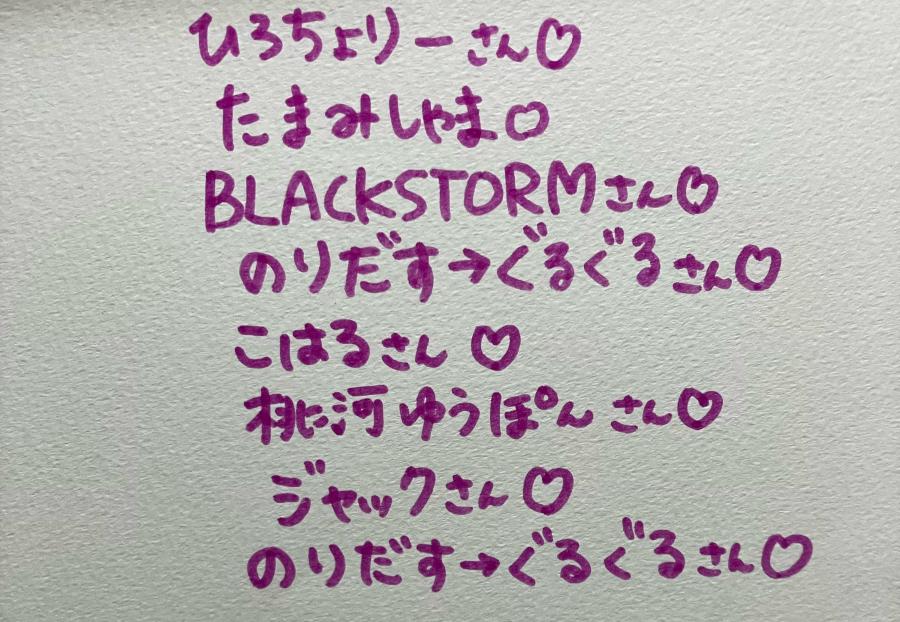 ひろちょりーさん♡
たまみしゃま♡
BLACKSTORMさん♡
のりだす→ぐるぐるさん♡
こはるさん♡
桃河ゆうぽんさん♡
ジャックさん♡
のりだす→ぐるぐるさん♡